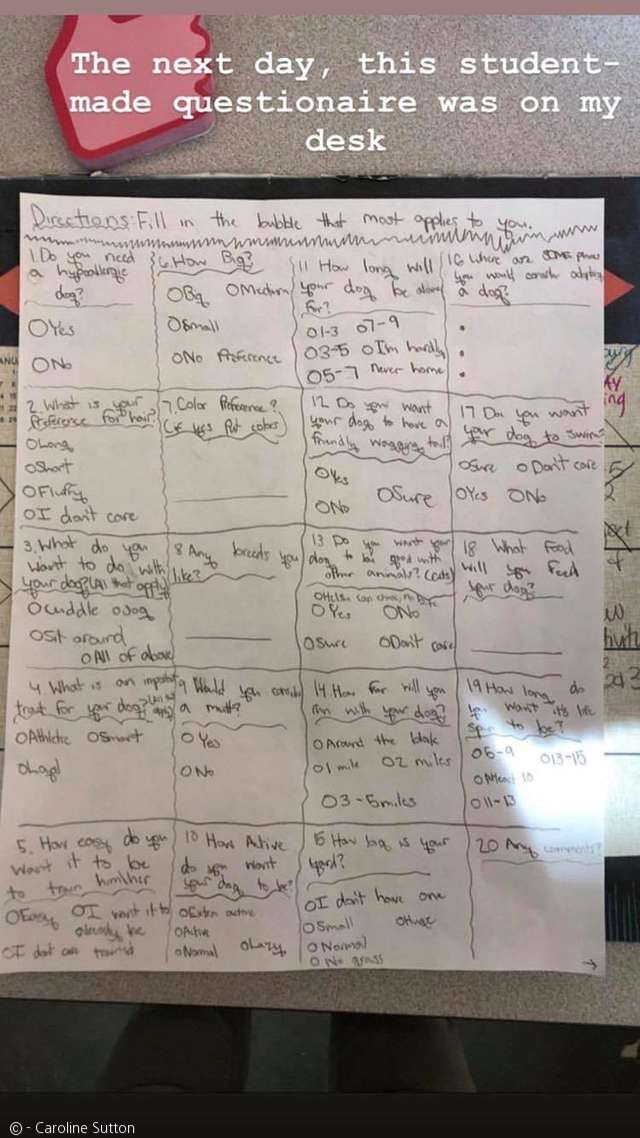 The next day, this student-
made questionaire was on my
desk
Directions: Fill in the bubble that most applies to you.
1. Do you need
a hypoallergic
dog?
O Yes
O No
2. What is your
Preference for hair?
O Long
O Short
O Fluffy
O I don't care
3. What do you
want to do with
your dog? (All that apply)
O Cuddle O Jog
O Sit around
O All of above
4 What is an important
trait for your dog?
O Athletic O Smart
O Loyal
5. How easy do you
want it to be
to train him/her
O Easy O I want it to
already be
trained
O I dont care
6. How Big?
O Big O Medium
O Small
O No Preference
7. Color Preference?
(If yes Put colors)
8 Any breeds you
like?
9 Would you consider
a mutt?
O Yes
O No
10 How Active
do you want
your dog to be?
O Extra active
O Active
O Normal O Lazy
11 How long will
your dog be alone
for?
O 1-3 O 7-9
O 3-5 O I'm hardly
O 5-7 never home
12 Do you want
your dog to have a
friendly wagging tail?
O Yes
O No O Sure
13 Do you want your
dog to be good with
other animals? (cats)
O Yes O No
O Sure O Don't care
14 How far will you
run with your dog?
O Around the block
O 1 mile O 2 miles
O 3-5 miles
15 How big is your
yard?
O I don't have one
O Small O Huge
O Normal
O No grass
16 Where are some places
you would consider adopting
a dog?
17 Do you want
your dog to swim?
O Sure O Don't care
O Yes O No
18 What Food
will you feed
your dog?
19 How long do
you want it's life
span to be?
O 6-9 O 13-15
O 11-13
20 Any comments?
© - Caroline Sutton